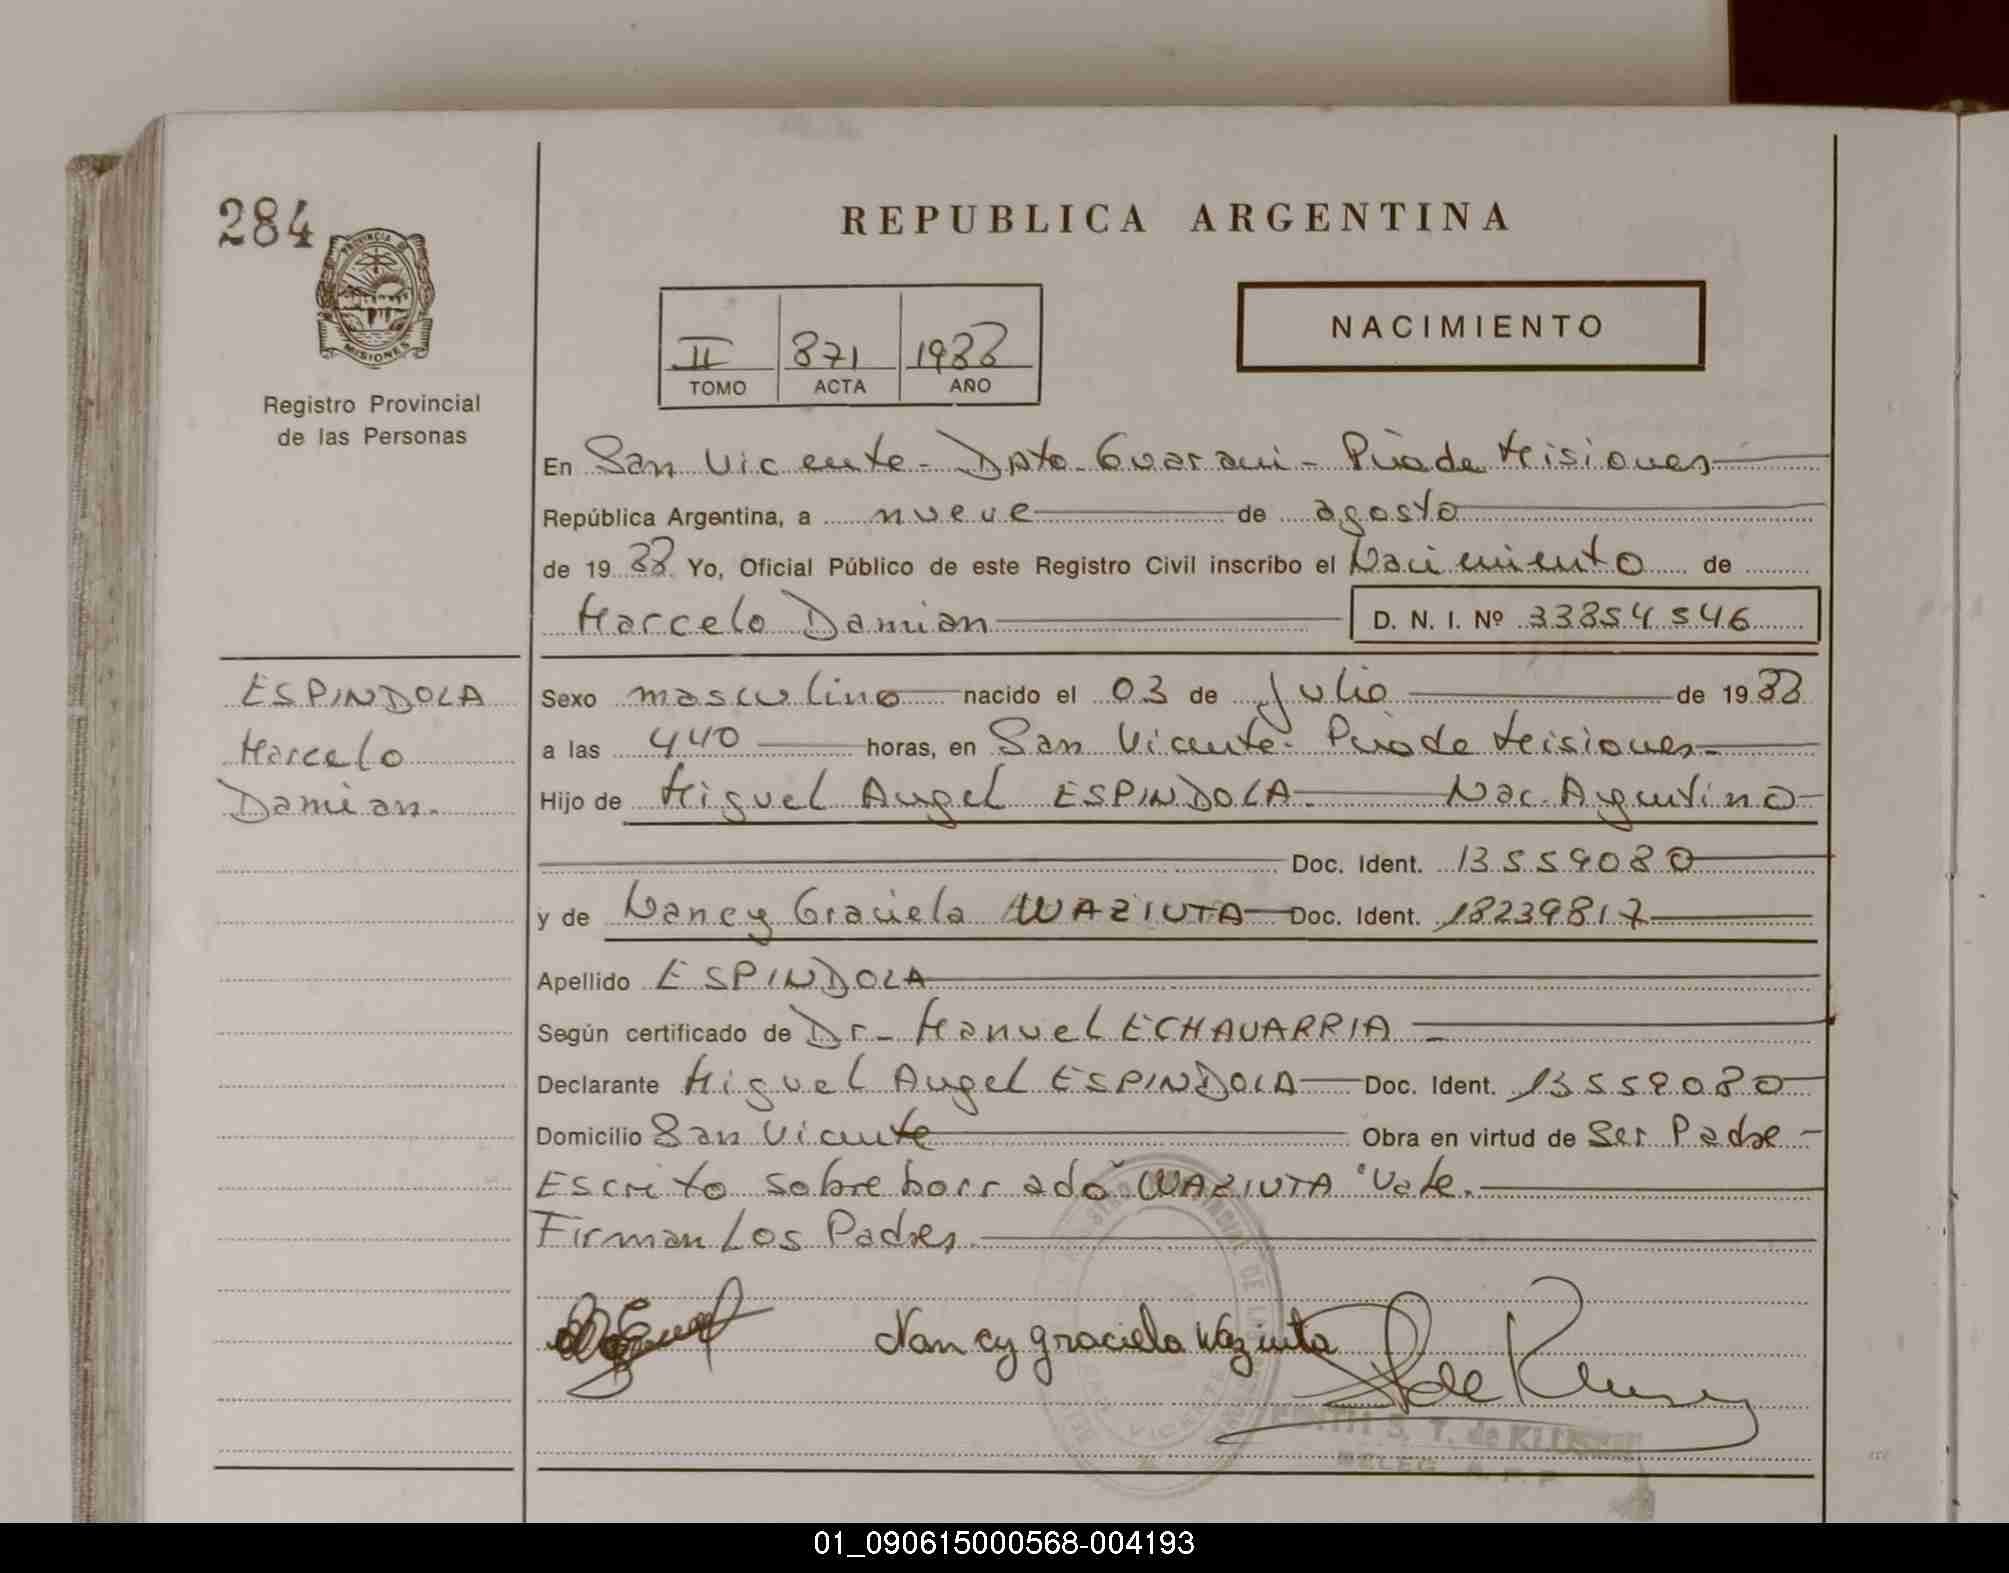 284
REPUBLICA ARGENTINA
PROVINCIA DE
MISIONES
Registro Provincial
de las Personas
II 871 1988
TOMO ACTA AÑO
NACIMIENTO
En San Vicente - Dpto. Guarani - Pcia de Misiones
República Argentina, a nueve de agosto
de 1988 Yo, Oficial Público de este Registro Civil inscribo el Nacimiento de
Marcelo Damian D. N. I. Nº 33854546
ESPINDOLA
Marcelo
Damian.
Sexo masculino nacido el 03 de Julio de 1988
a las 440 horas, en San Vicente. Pcia de Misiones
Hijo de Miguel Angel ESPINDOLA. Nac. Argentino
Doc. Ident. 13559080
y de Nancy Graciela WAZIUTA Doc. Ident. 18239817
Apellido ESPINDOLA
Según certificado de Dr. Manuel ECHAVARRIA
Declarante Miguel Angel ESPINDOLA Doc. Ident. 13559080
Domicilio San Vicente Obra en virtud de Ser Padre
Escrito sobre borrado "WAZIUTA" Vale.
Firman Los Padres
Nancy graciela Waziuta
EDITH S. T. de
DELEG. R. P. P.
SAN VICENTE
01_090615000568-004193